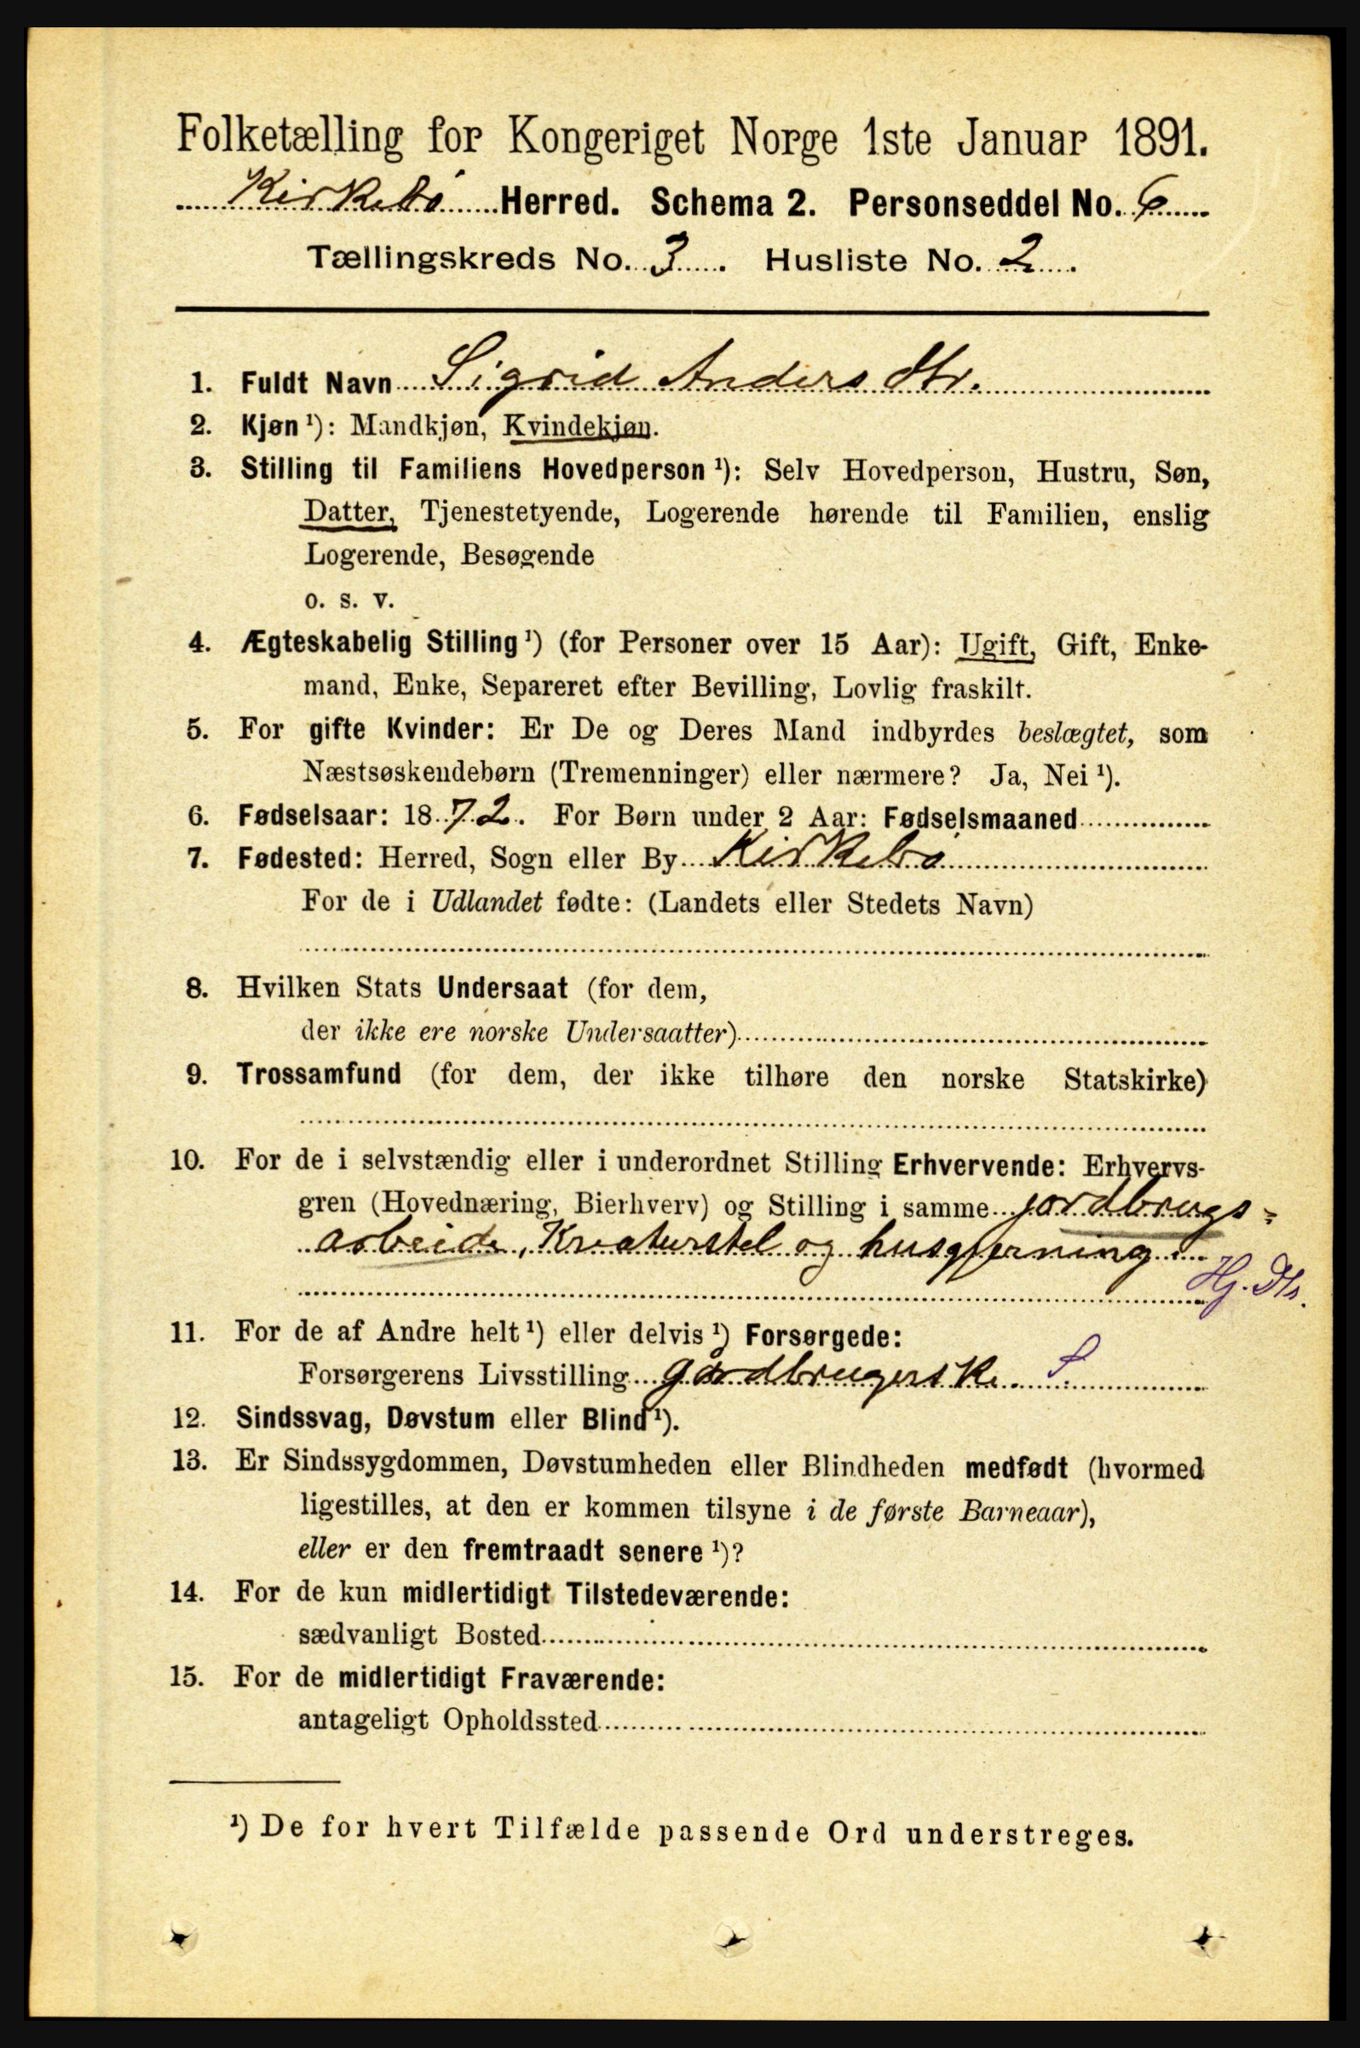 Folketælling for Kongeriget Norge 1ste Januar 1891.
Kirkebö Herred. Schema 2. Personseddel No. 6
Tællingskreds No. 3. Husliste No. 2.
1. Fuldt Navn Sigrid Anders Dtr.
2. Kjøn¹): Mandkjøn, Kvindekjøn.
3. Stilling til Familiens Hovedperson¹): Selv Hovedperson, Hustru, Søn,
Datter, Tjenestetyende, Logerende hørende til Familien, enslig
Logerende, Besøgende
o. s. v.
4. Ægteskabelig Stilling¹) (for Personer over 15 Aar): Ugift, Gift, Enke-
mand, Enke, Separeret efter Bevilling, Lovlig fraskilt.
5. For gifte Kvinder: Er De og Deres Mand indbyrdes beslægtet, som
Næstsøskendebørn (Tremenninger) eller nærmere? Ja, Nei¹).
6. Fødselsaar: 1872. For Børn under 2 Aar: Fødselsmaaned
7. Fødested: Herred, Sogn eller By Kirkebö
For de i Udlandet fødte: (Landets eller Stedets Navn)
8. Hvilken Stats Undersaat (for dem,
der ikke ere norske Undersaatter)
9. Trossamfund (for dem, der ikke tilhøre den norske Statskirke)
10. For de i selvstændig eller i underordnet Stilling Erhvervende: Erhvervs-
gren (Hovednæring, Bierhverv) og Stilling i samme jordbrugs=
arbeide, Kreaturstel og husgjerning.
Hj. Dtr.
11. For de af Andre helt¹) eller delvis¹) Forsørgede:
Forsørgerens Livsstilling gårdbrugerske. S.
12. Sindssvag, Døvstum eller Blind¹).
13. Er Sindssygdommen, Døvstumheden eller Blindheden medfødt (hvormed
ligestilles, at den er kommen tilsyne i de første Barneaar),
eller er den fremtraadt senere¹)?
14. For de kun midlertidigt Tilstedeværende:
sædvanligt Bosted
15. For de midlertidigt Fraværende:
antageligt Opholdssted
¹) De for hvert Tilfælde passende Ord understreges.